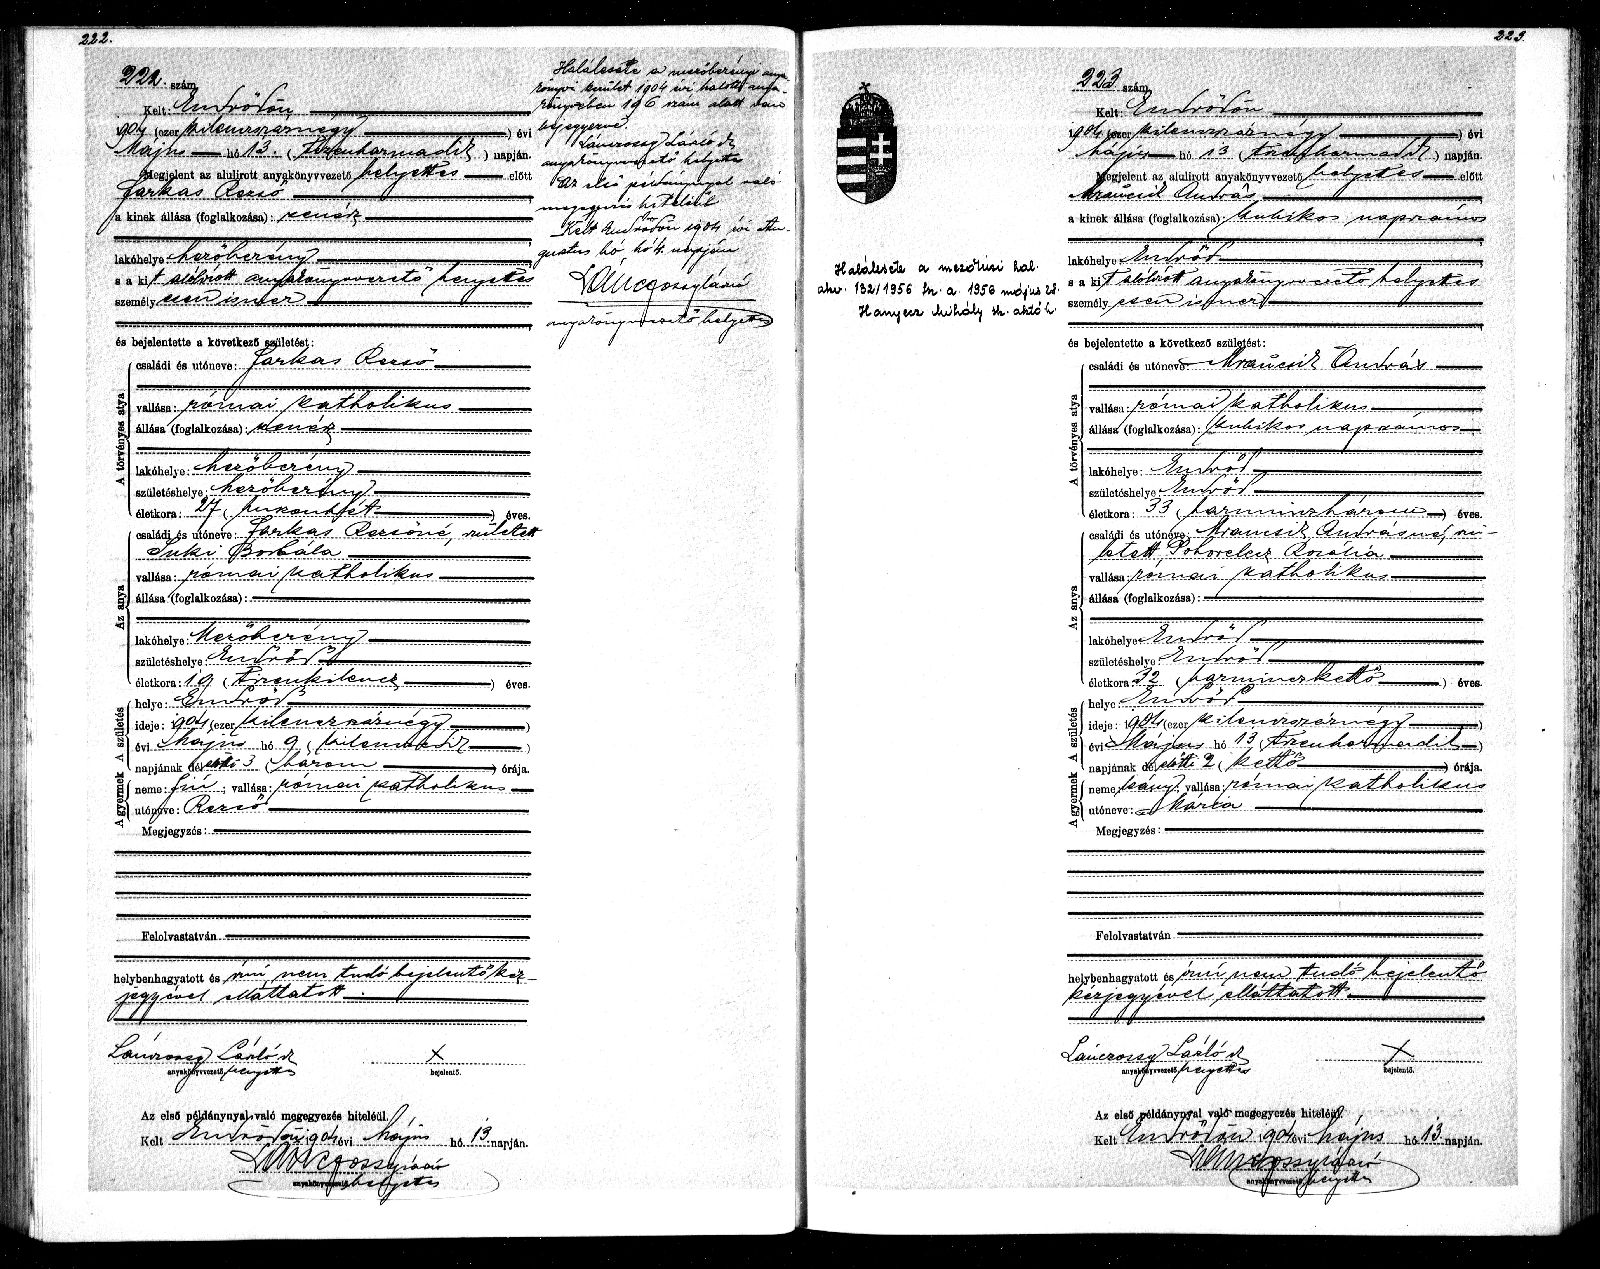 222.
222. szám
Kelt: Endrődön
1904 (ezer kilenczszáznégy) évi
Május hó 13. (tizenharmadik) napján.
Megjelent az alulirott anyakönyvvezető helyettes előtt
Farkas Rezső
a kinek állása (foglalkozása): zenész
lakóhelye: Mezőberény
s a kit alólirott anyakönyvvezető helyettes
személyesen ismer
és bejelentette a következő születést:
A törvényes atya
családi és utóneve: Farkas Rezső
vallása: római katholikus
állása (foglalkozása): zenész
lakóhelye: Mezőberény
születéshelye: Mezőberény
életkora: 27 (huszonhét) éves.
Az anya
családi és utóneve: Farkas Rezsőné, született
Suki Borbála
vallása: római katholikus
állása (foglalkozása):
lakóhelye: Mezőberény
születéshelye: Endrőd
életkora: 19 (tizenkilencz) éves.
A születés
helye: Endrőd
ideje: 1904 (ezer kilenczszáznégy)
évi Május hó 9 (kilenczedik)
napjának délelőtti 3 (három) órája.
A gyermek
neme: fiú; vallása: római katholikus
utóneve: Rezső
Megjegyzés:
Felolvastatván
helybenhagyatott és írni nem tudó bejelentő kéz-
jegyével elláttatott.
Lánczossy László dr
anyakönyvvezető helyettes
X
bejelentő.
Az első példánynyal való megegyezés hiteléül.
Kelt Endrődön 1904 évi Május hó 13 napján.
Lánczossy László
anyakönyvvezető helyettes
Halálesete a mezőberényi anya-
könyvi kerület 1904 évi halotti anya-
könyvében 196 szám alatt van
bejegyezve.
Lánczossy László dr
anyakönyvvezető helyettes
Az első példánynyal való
megegyezés hiteléül
Kelt Endrődön 1904 évi Au-
gusztus hó 4. napján
Lánczossy László
anyakönyvvezető helyettes
223.
Halálesete a mezőtúri hal.
akv. 132/1956 fsz. a. 1956 május 28.
Hanyecz Mihály sk. aktóh.
223 szám
Kelt: Endrődön
1904 (ezer kilenczszáznégy) évi
Május hó 13 (tizenharmadik) napján.
Megjelent az alulirott anyakönyvvezető helyettes előtt
Mraucsik András,
a kinek állása (foglalkozása): kubikos napszámos
lakóhelye: Endrőd
s a kit alólirott anyakönyvvezető helyettes
személyesen ismer
és bejelentette a következő születést:
A törvényes atya
családi és utóneve: Mraucsik András
vallása: római katholikus
állása (foglalkozása): kubikos napszámos
lakóhelye: Endrőd
születéshelye: Endrőd
életkora: 33 (harminczhárom) éves.
Az anya
családi és utóneve: Mraucsik Andrásné, szü-
letett Pohorelecz Rozália
vallása: római katholikus
állása (foglalkozása):
lakóhelye: Endrőd
születéshelye: Endrőd
életkora: 32 (harminczkettő) éves.
A születés
helye: Endrőd
ideje: 1904 (ezer kilenczszáznégy)
évi Május hó 13 (tizenharmadik)
napjának délelőtti 2 (kettő) órája.
A gyermek
neme: leány; vallása: római katholikus
utóneve: Mária
Megjegyzés:
Felolvastatván
helybenhagyatott és írni nem tudó bejelentő
kézjegyével elláttatott
Lánczossy László dr
anyakönyvvezető helyettes
X
bejelentő.
Az első példánynyal való megegyezés hiteléül.
Kelt Endrődön 1904 évi Május hó 13 napján.
Lánczossy László
anyakönyvvezető helyettes